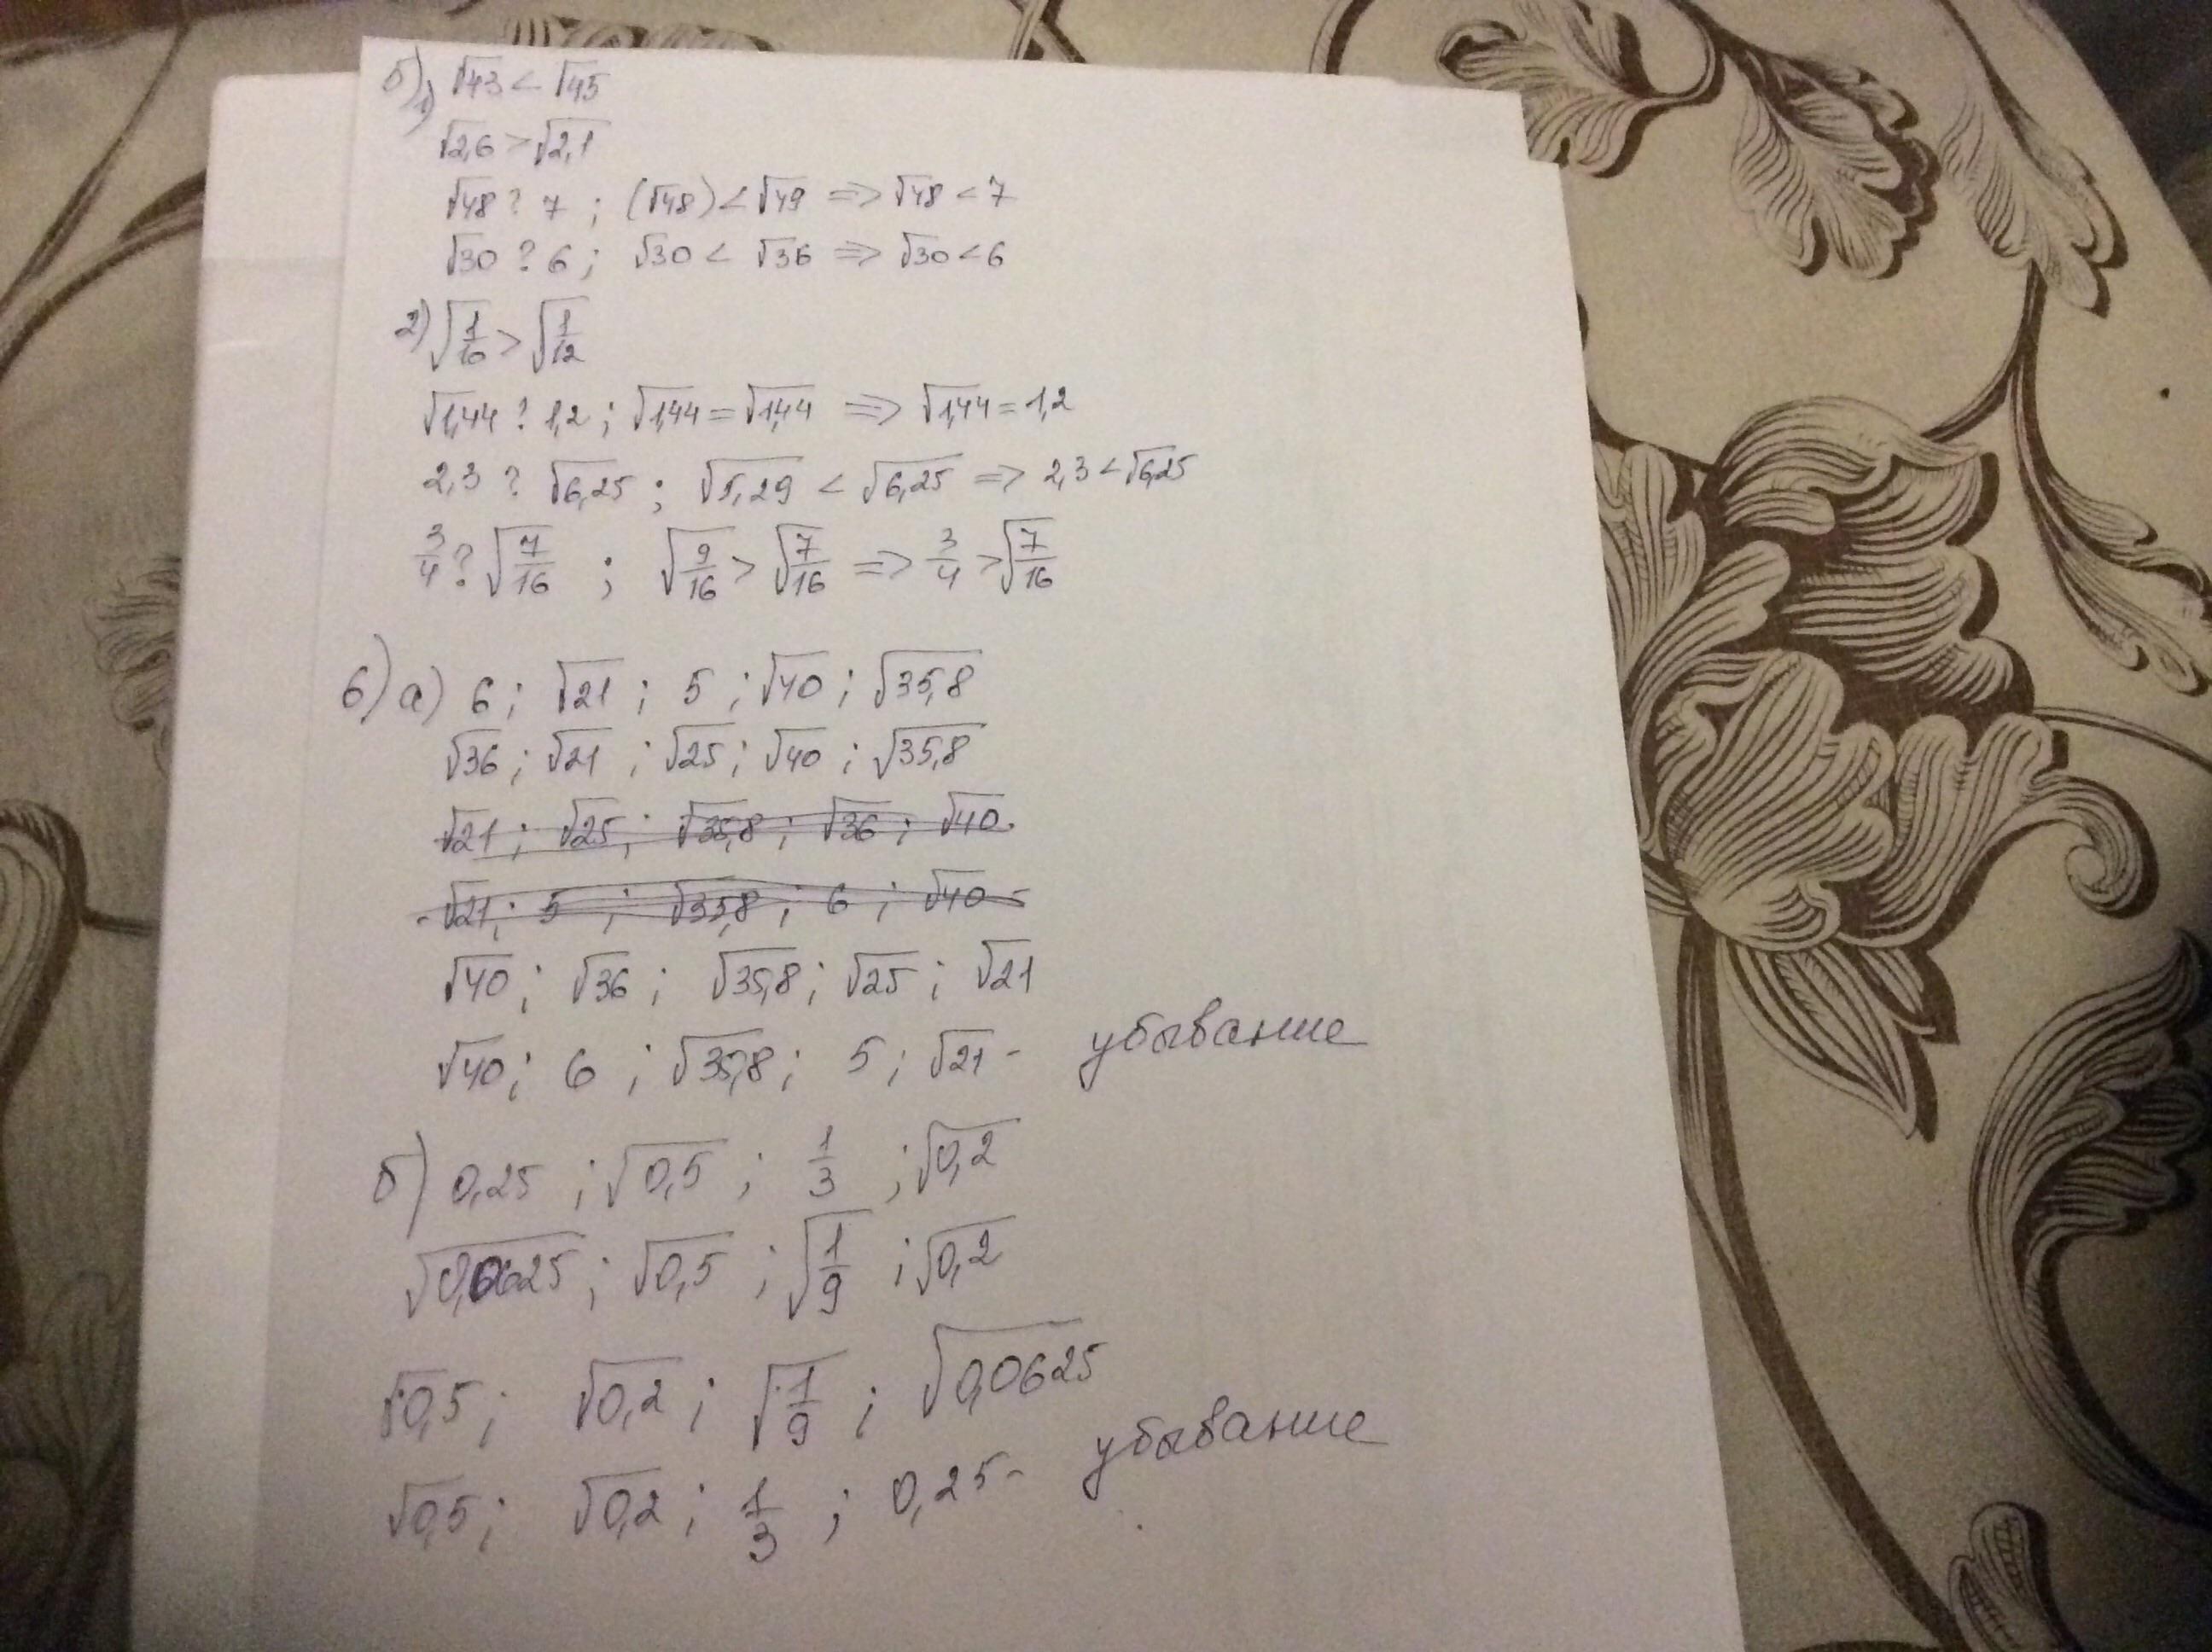 5) 1) √43 < √45
√2,6 > √2,1
√48 ? 7 ; (√48) < √49 => √48 < 7
√30 ? 6 ; √30 < √36 => √30 < 6
2) √1/10 > √1/12
√1,44 ? 1,2 ; √1,44 = √1,44 => √1,44 = 1,2
2,3 ? √6,25 ; √5,29 < √6,25 => 2,3 < √6,25
3/4 ? √7/16 ; √9/16 > √7/16 => 3/4 > √7/16
6) а) 6 ; √21 ; 5 ; √40 ; √35,8
√36 ; √21 ; √25 ; √40 ; √35,8
√21 ; √25 ; √35,8 ; √36 ; √40
√21 ; 5 ; √35,8 ; 6 ; √40 -
√40 ; √36 ; √35,8 ; √25 ; √21
√40 ; 6 ; √35,8 ; 5 ; √21 - убывание
б) 0,25 ; √0,5 ; 1/3 ; √0,2
√0,0625 ; √0,5 ; √1/9 ; √0,2
√0,5 ; √0,2 ; √1/9 ; √0,0625
√0,5 ; √0,2 ; 1/3 ; 0,25 - убывание